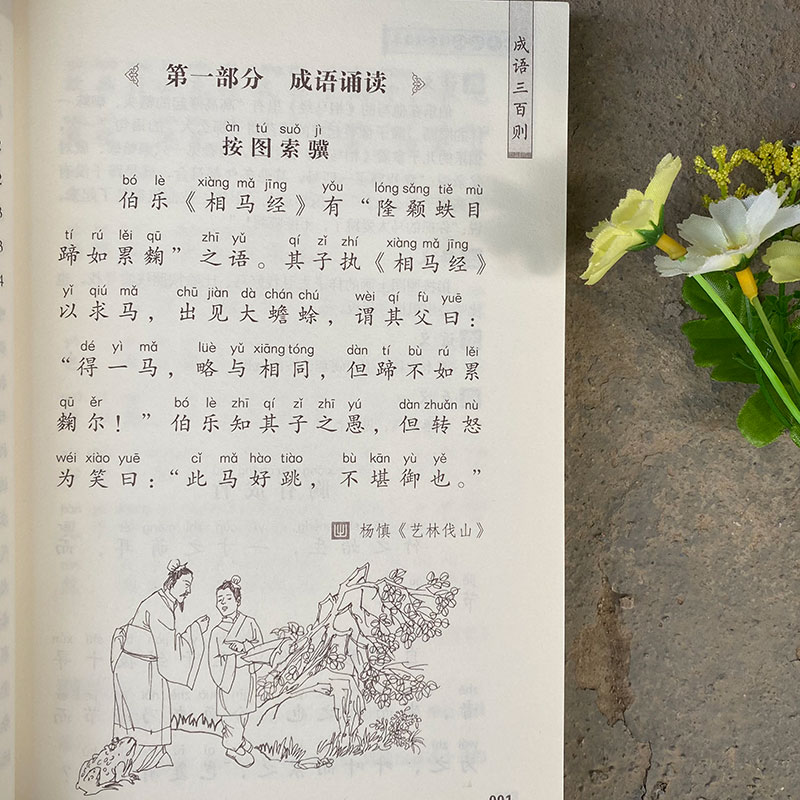 成语三百则
第一部分 成语诵读
àn tú suǒ jì
按图索骥
bó lè xiàng mǎ jīng yǒu lóng sǎng tiě mù
伯乐《相马经》有“隆颡蛈目
tí rú lěi qū zhī yǔ qí zǐ zhí xiàng mǎ jīng
蹄如累麹”之语。其子执《相马经》
yǐ qiú mǎ chū jiàn dà chán chú wèi qí fù yuē
以求马，出见大蟾蜍，谓其父曰：
dé yì mǎ lüè yǔ xiāng tóng dàn tí bù rú lěi
“得一马，略与相同，但蹄不如累
qū ěr bó lè zhī qí zǐ zhī yú dàn zhuǎn nù
麹尔！”伯乐知其子之愚，但转怒
wéi xiào yuē cǐ mǎ hào tiào bù kān yù yě
为笑曰：“此马好跳，不堪御也。”
杨慎《艺林伐山》
001